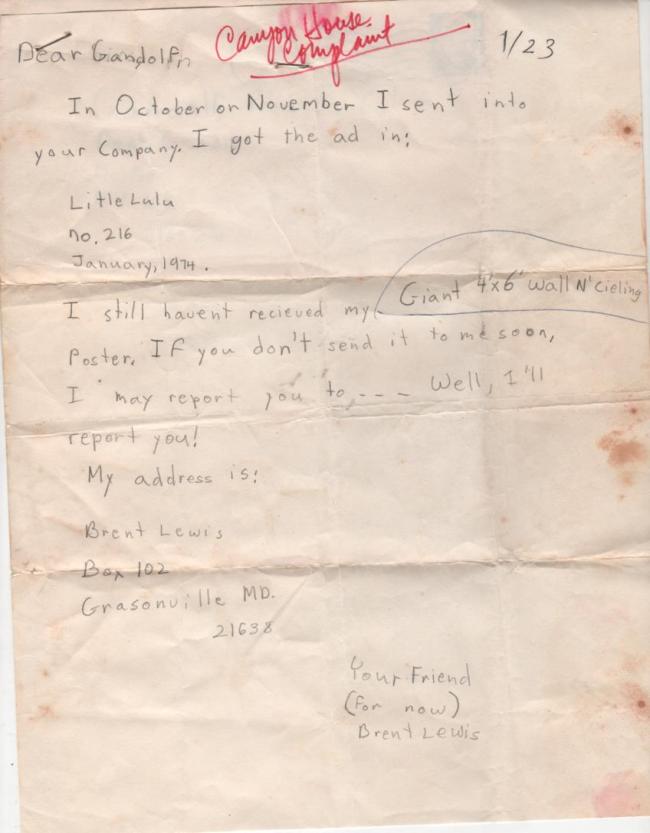 Canyon House.
Complaint
1/23
Dear Gandolfn
In October or November I sent into
your Company. I got the ad in:
Litle Lulu
no. 216
January, 1974.
I still havent recieved my Giant 4'x6' Wall N' Cieling
Poster. If you don't send it to me soon,
I may report you to, --- Well, I'll
report you!
My address is:
Brent Lewis
Box 102
Grasonville MD.
21638
Your Friend
(for now)
Brent Lewis